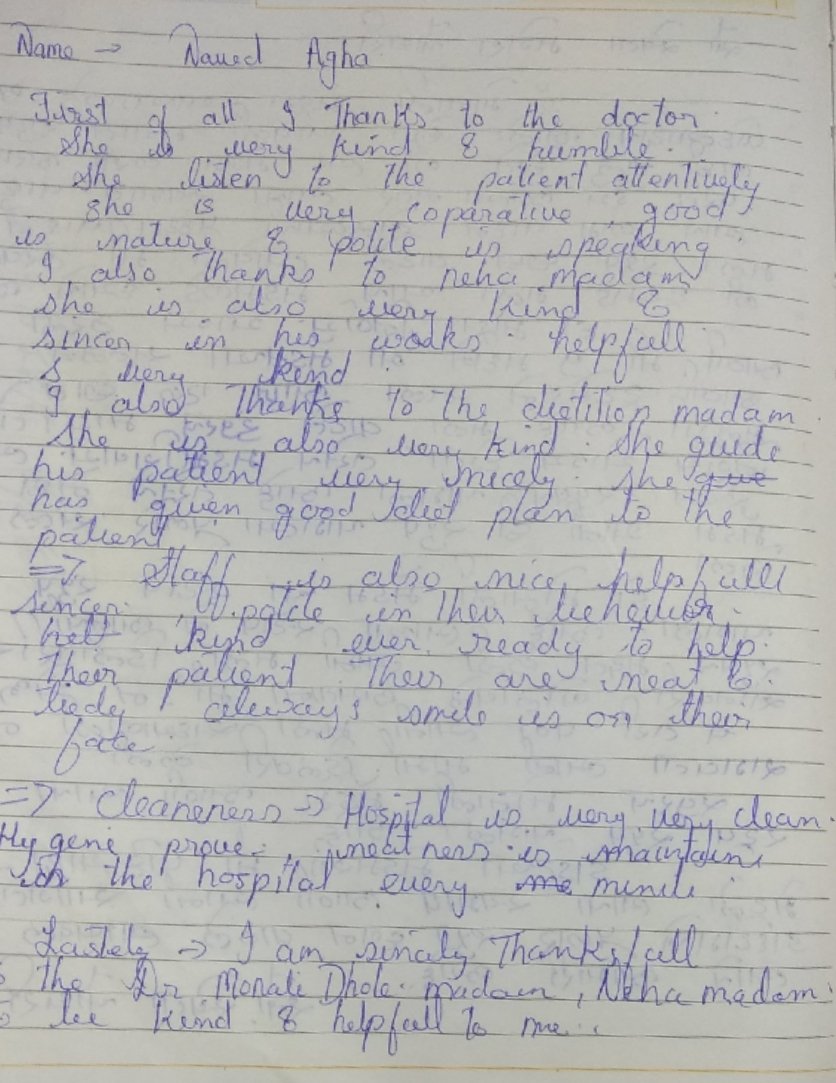 Name → Naued Agha
First of all I Thanks to the doctor.
She is very kind & humble.
She listen to the patient attentively
she is very coparative, good
is nature & polite is speaking
I also Thanks to neha madam
she is also very kind &
sincer in his works. helpfull
& very kind.
I also Thanks to the dietition madam
She is also very kind. She guide
his patient very nicely. She
has given good diet plan to the
patient
=> Staff is also nice, helpfull
sincer, polite in their
kind ever ready to help.
Their patient Their are neat &
tiedy always smile is on their
face.
=> Cleaneners → Hospital is very very clean.
Hygene prove, neatness is maintain
in the hospital every minute.
Lastely → I am sincely Thanksfull
the Dr Monali Dhole madam, Neha madam.
be kind & helpfull to me.